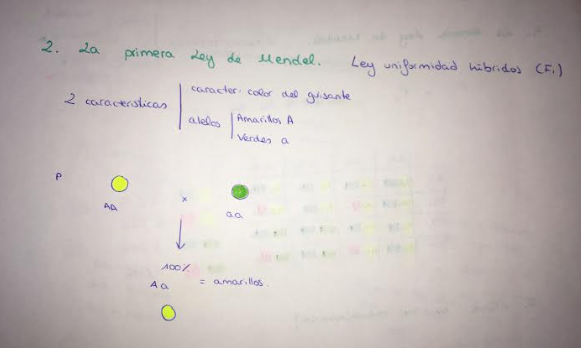 2. La primera Ley de Mendel. Ley uniformidad híbridos (F₁)
2 características
caracter: color del guisante
alelos
Amarillos A
Verdes a
P
AA
x
aa
100%
Aa = amarillos.